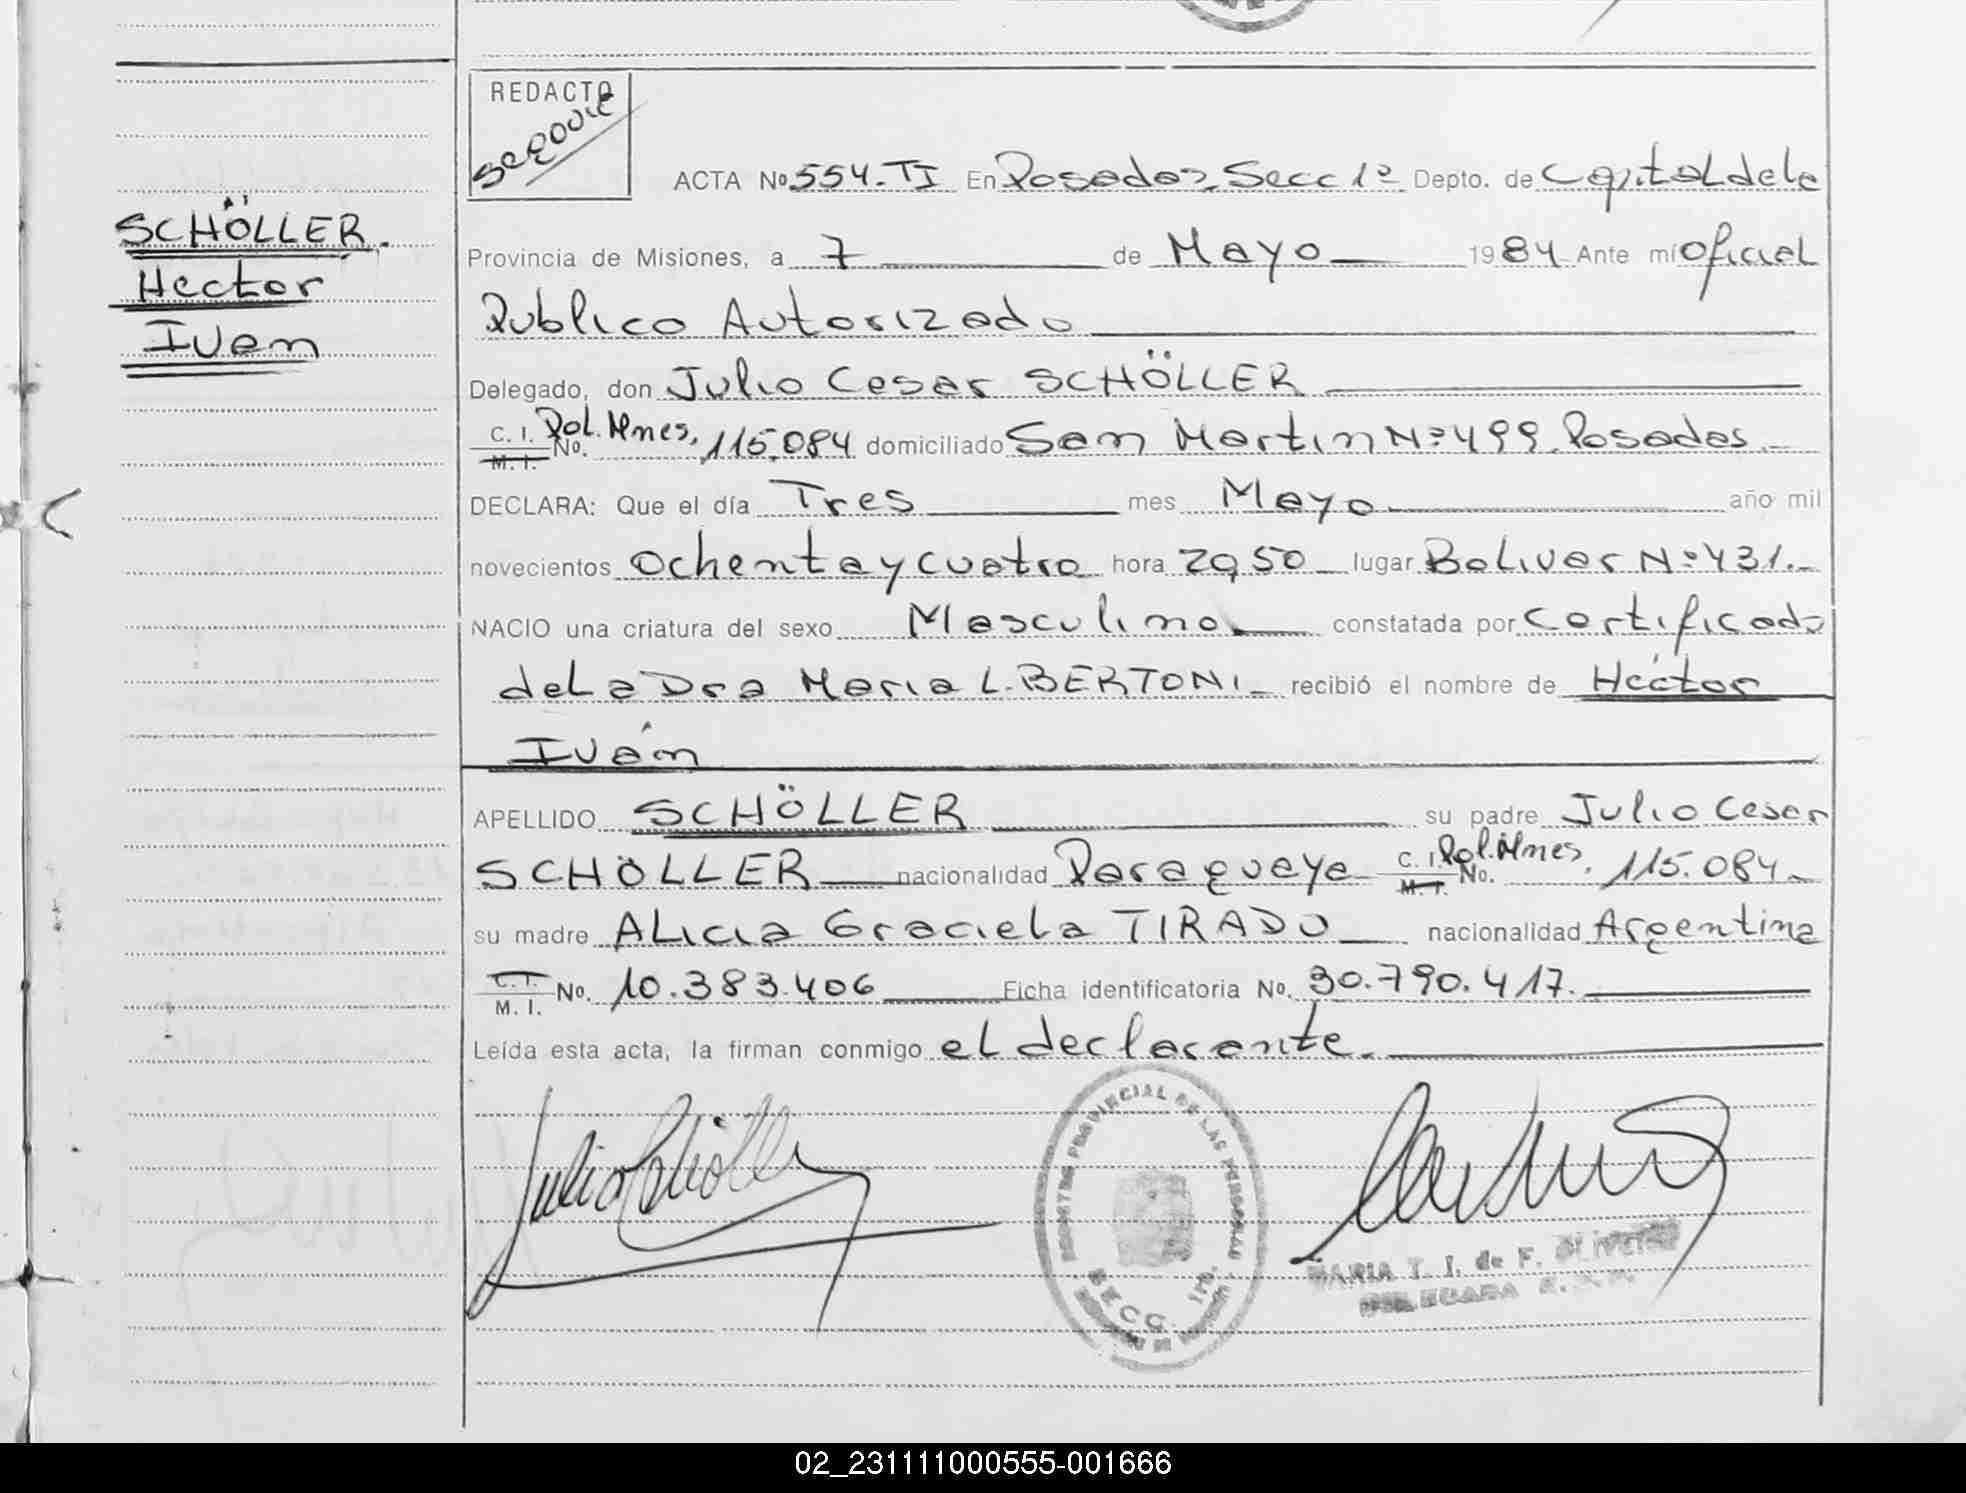 REDACTO
ACTA Nº 554. TI En Posadas, Secc 1º Depto. de Capital de la
SCHÖLLER.
Hector
Ivan
Provincia de Misiones, a 7 de Mayo 1984 Ante mí oficial
Publico Autorizado
Delegado, don Julio Cesar SCHÖLLER
C. I. M. I. No. Pol. Mnes. 115.084 domiciliado San Martin Nº 499. Posadas.-
DECLARA: Que el día Tres mes Mayo año mil
novecientos Ochenta y cuatro hora 20,50 lugar Bolivar Nº 431.-
NACIO una criatura del sexo Masculino constatada por Certificado
de La Dra Maria L. BERTONI recibió el nombre de Héctor
Iván
APELLIDO SCHÖLLER su padre Julio Cesar
SCHÖLLER nacionalidad Paraguaya C. I. M. I. No. Pol. Mnes. 115.084
su madre ALicia Graciela TIRADO nacionalidad Argentina
C. I. M. I. No. 10.383.406 Ficha identificatoria No. 30.790.417.
Leída esta acta, la firman conmigo el declarante.
Julio Schöller
REGISTRO PROVINCIAL DE LAS PERSONAS
SECC. 1ra.
MARIA T. I. de F. OLIVEIRA
DELEGADA
02_231111000555-001666